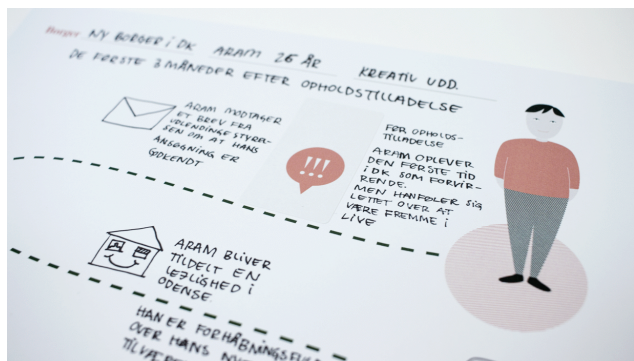 Borger NY BORGER i DK ARAM 26 ÅR KREATIV UDD.
DE FØRSTE 3 MÅNEDER EFTER OPHOLDSTILLADELSE
ARAM MODTAGER
ET BREV FRA
UDLENDINGE STYREL-
SEN OM AT HANS
ANSØGNING ER
GODKENDT
!!!
FØR OPHOLDS-
TILLADELSE
ARAM OPLEVER
DEN FØRSTE TID
i DK SOM FORVIR-
RENDE.
MEN HAN FØLER SIG
LETTET OVER AT
VÆRE FREMME i
LIVE
ARAM BLIVER
TILDELT EN
LEJLIGHED i
ODENSE.
HAN ER FORHÅBNINGSFULD
OVER HANS